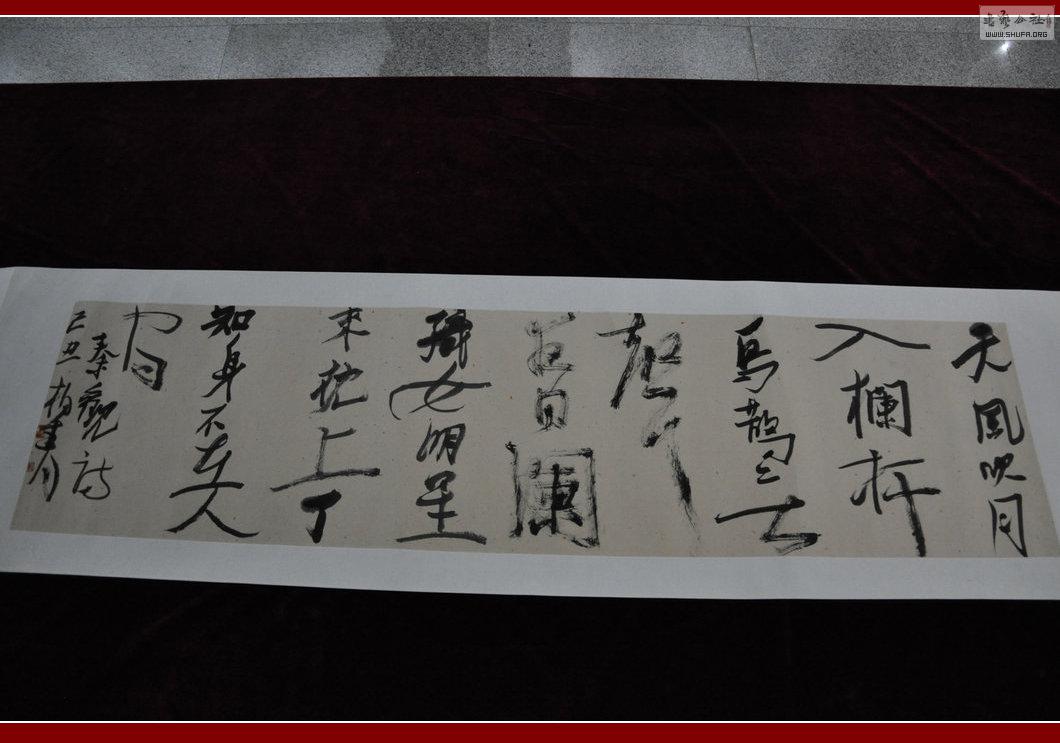 天風吹月
入欄杆
烏鵲無
聲子
夜闌
織女明星
來枕上了
知身不在人
間
秦觀詩
己丑
書艺公社
WWW.SHUFA.ORG